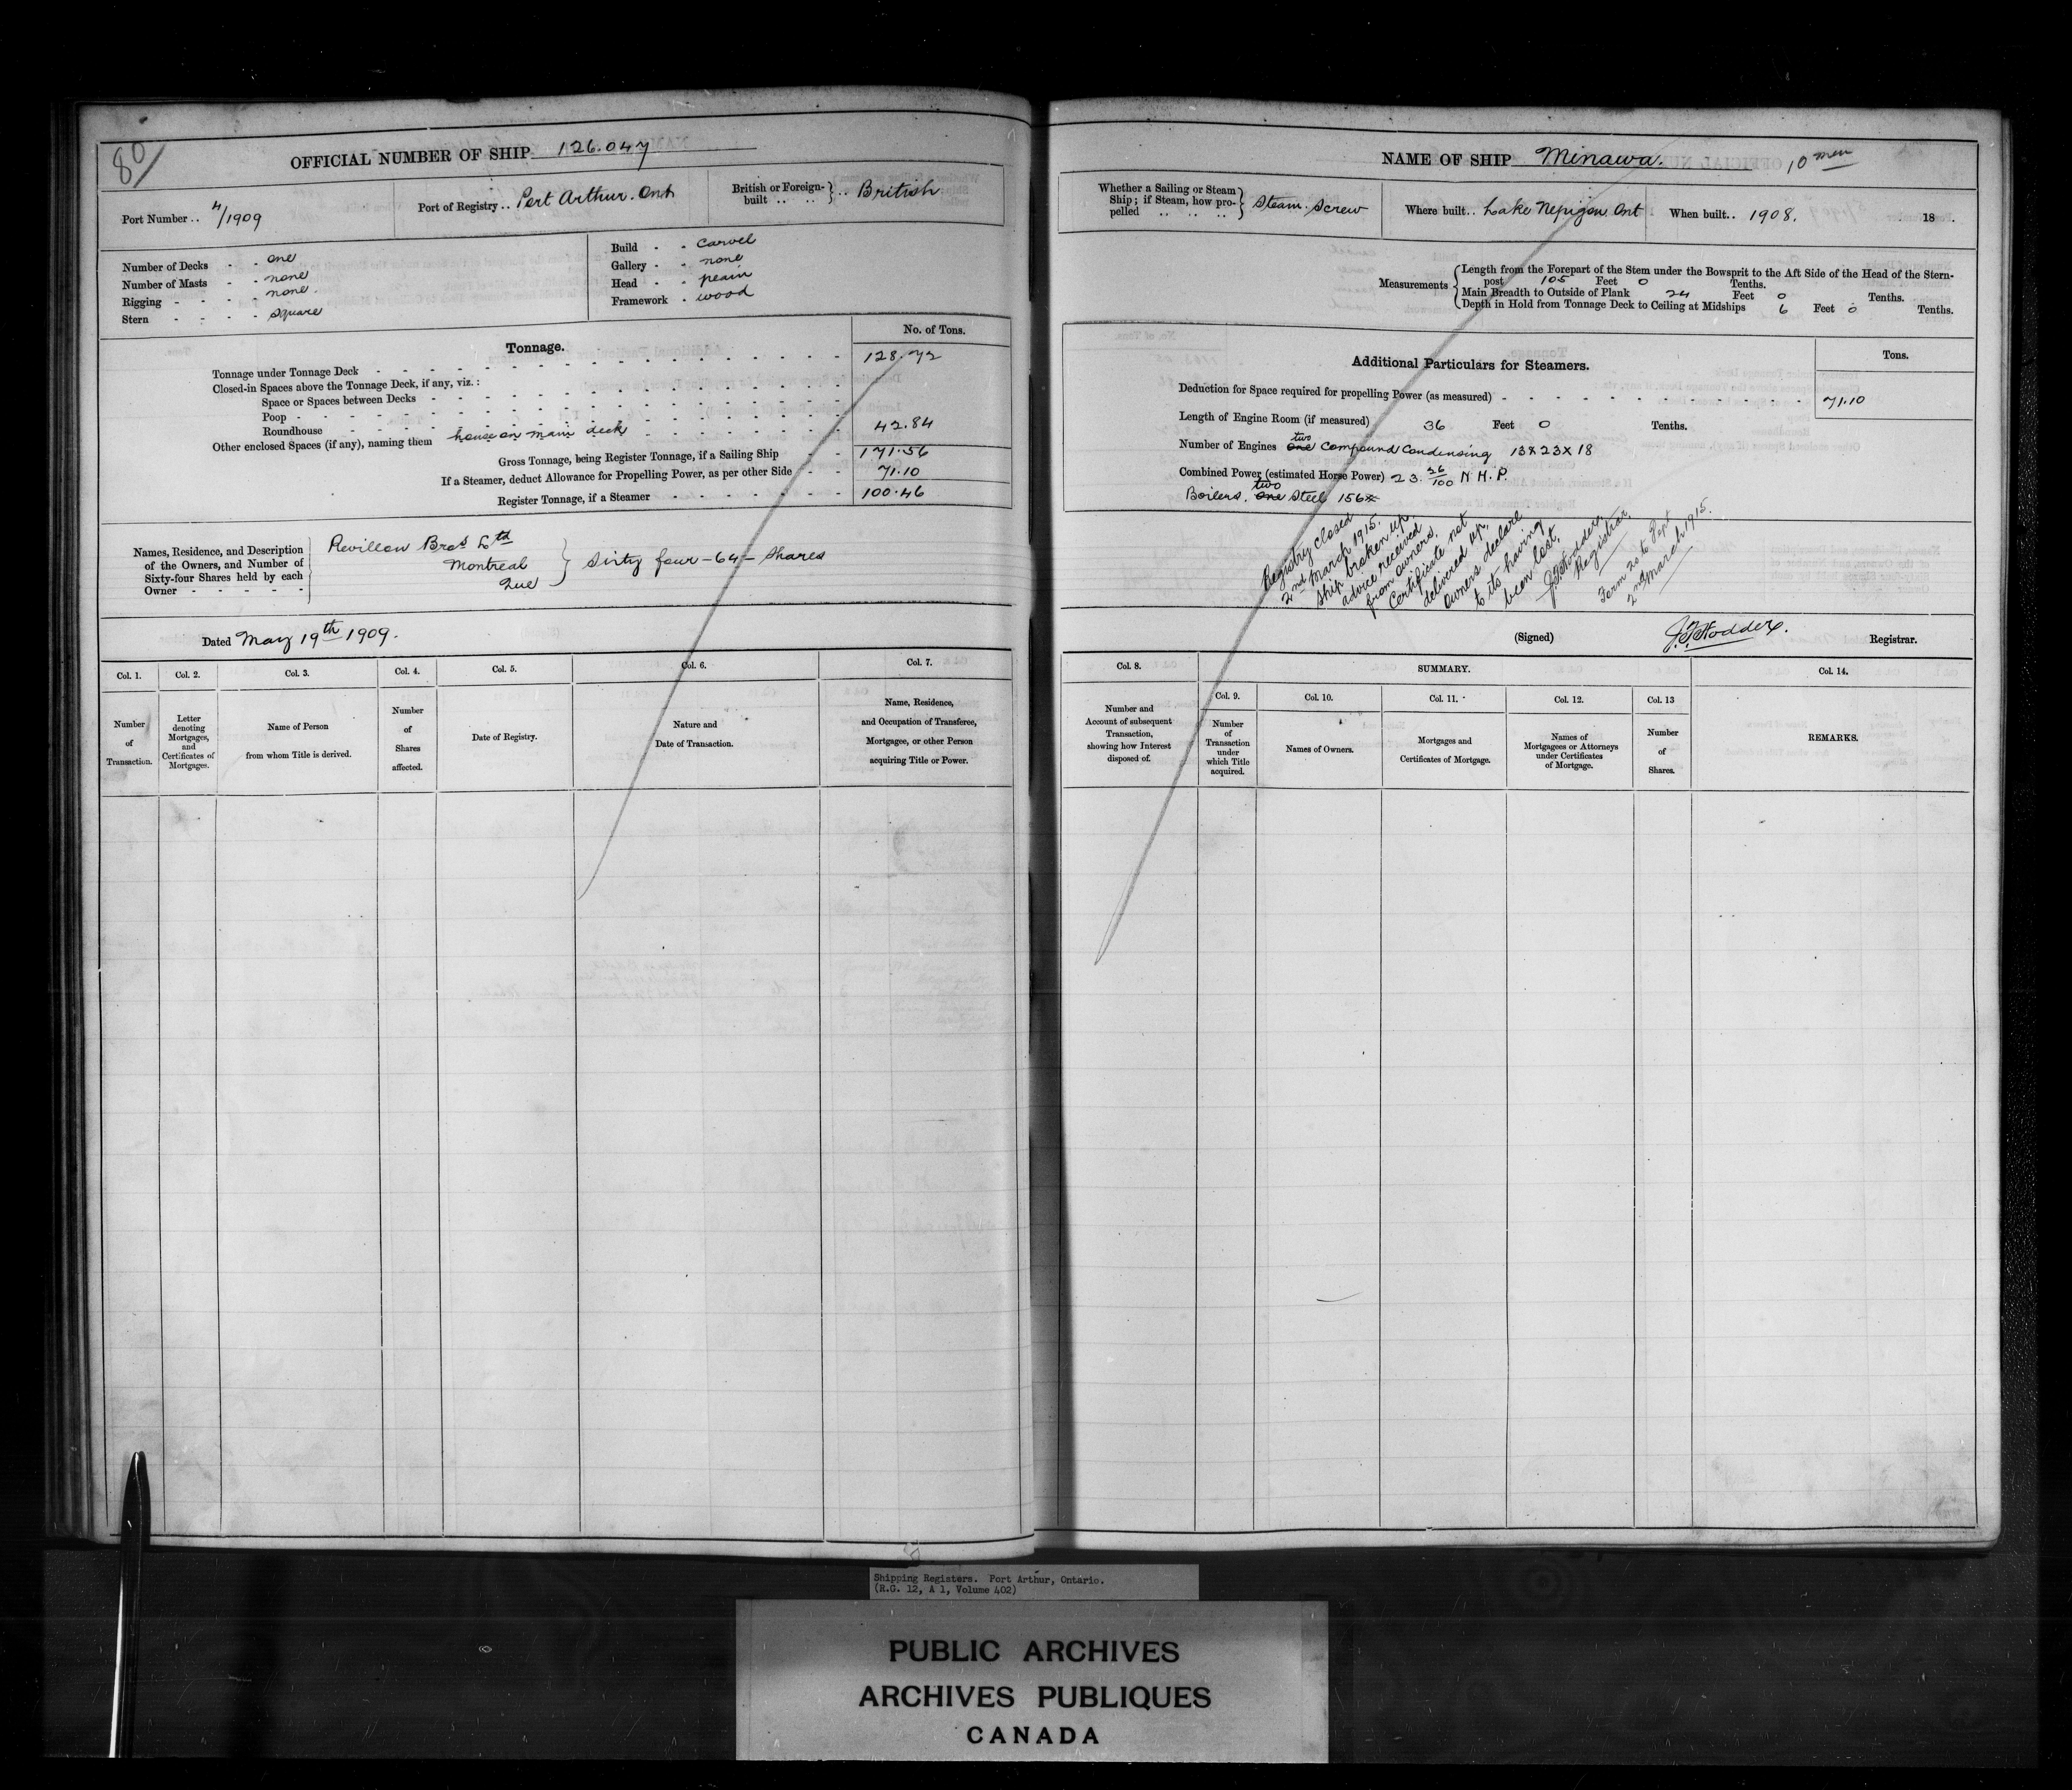 80/
OFFICIAL NUMBER OF SHIP 126.047
Port Number .. 4/1909
Port of Registry .. Port Arthur. Ont
British or Foreign-built .. .. } .. British
Number of Decks - - one
Number of Masts - - none
Rigging - - - - none.
Stern - - - - square
Build - - Carvel
Gallery - - none
Head - - plain
Framework - wood
Tonnage.
No. of Tons.
Tonnage under Tonnage Deck 128.72
Closed-in Spaces above the Tonnage Deck, if any, viz.:
Space or Spaces between Decks
Poop
Roundhouse
Other enclosed Spaces (if any), naming them house on main deck 42.84
Gross Tonnage, being Register Tonnage, if a Sailing Ship 171.56
If a Steamer, deduct Allowance for Propelling Power, as per other Side 71.10
Register Tonnage, if a Steamer 100.46
Names, Residence, and Description
of the Owners, and Number of
Sixty-four Shares held by each
Owner - - - - -
Revillon Bros Ltd
Montreal
Que
} Sixty four – 64 – Shares
Dated May 19th 1909.
Col. 1.
Number
of
Transaction.
Col. 2.
Letter
denoting
Mortgages,
and
Certificates of
Mortgages.
Col. 3.
Name of Person
from whom Title is derived.
Col. 4.
Number
of
Shares
affected.
Col. 5.
Date of Registry.
Col. 6.
Nature and
Date of Transaction.
Col. 7.
Name, Residence,
and Occupation of Transferee,
Mortgagee, or other Person
acquiring Title or Power.
NAME OF SHIP Minawa.
10 men
Whether a Sailing or Steam
Ship; if Steam, how pro-
pelled .. .. ..
} Steam. Screw
Where built .. Lake Nepigon. Ont
When built .. 1908. 18 .
Measurements
Length from the Forepart of the Stem under the Bowsprit to the Aft Side of the Head of the Stern-
post 105 Feet 0 Tenths.
Main Breadth to Outside of Plank 24 Feet 0 Tenths.
Depth in Hold from Tonnage Deck to Ceiling at Midships 6 Feet 0 Tenths.
Additional Particulars for Steamers.
Tons.
Deduction for Space required for propelling Power (as measured) 71.10
Length of Engine Room (if measured) 36 Feet 0 Tenths.
Number of Engines one two Compound Condensing 13 x 23 x 18
Combined Power (estimated Horse Power) 23. 26/100 N H.P.
Boilers. one two Steel 156
Registry closed
2nd March 1915.
Ship broken up.
advice received
from owners.
Certificate not
delivered up,
Owners declare
to its having
been lost.
J.F. Hodder.
Registrar.
Form 20 to Dept
2nd March 1915.
(Signed) J.F. Hodder. Registrar.
Col. 8.
Number and
Account of subsequent
Transaction,
showing how Interest
disposed of.
SUMMARY.
Col. 9.
Number
of
Transaction
under
which Title
acquired.
Col. 10.
Names of Owners.
Col. 11.
Mortgages and
Certificates of Mortgage.
Col. 12.
Names of
Mortgagees or Attorneys
under Certificates
of Mortgage.
Col. 13
Number
of
Shares.
Col. 14.
REMARKS.
Shipping Registers. Port Arthur, Ontario.
(R.G. 12, A 1, Volume 402)
PUBLIC ARCHIVES
ARCHIVES PUBLIQUES
CANADA